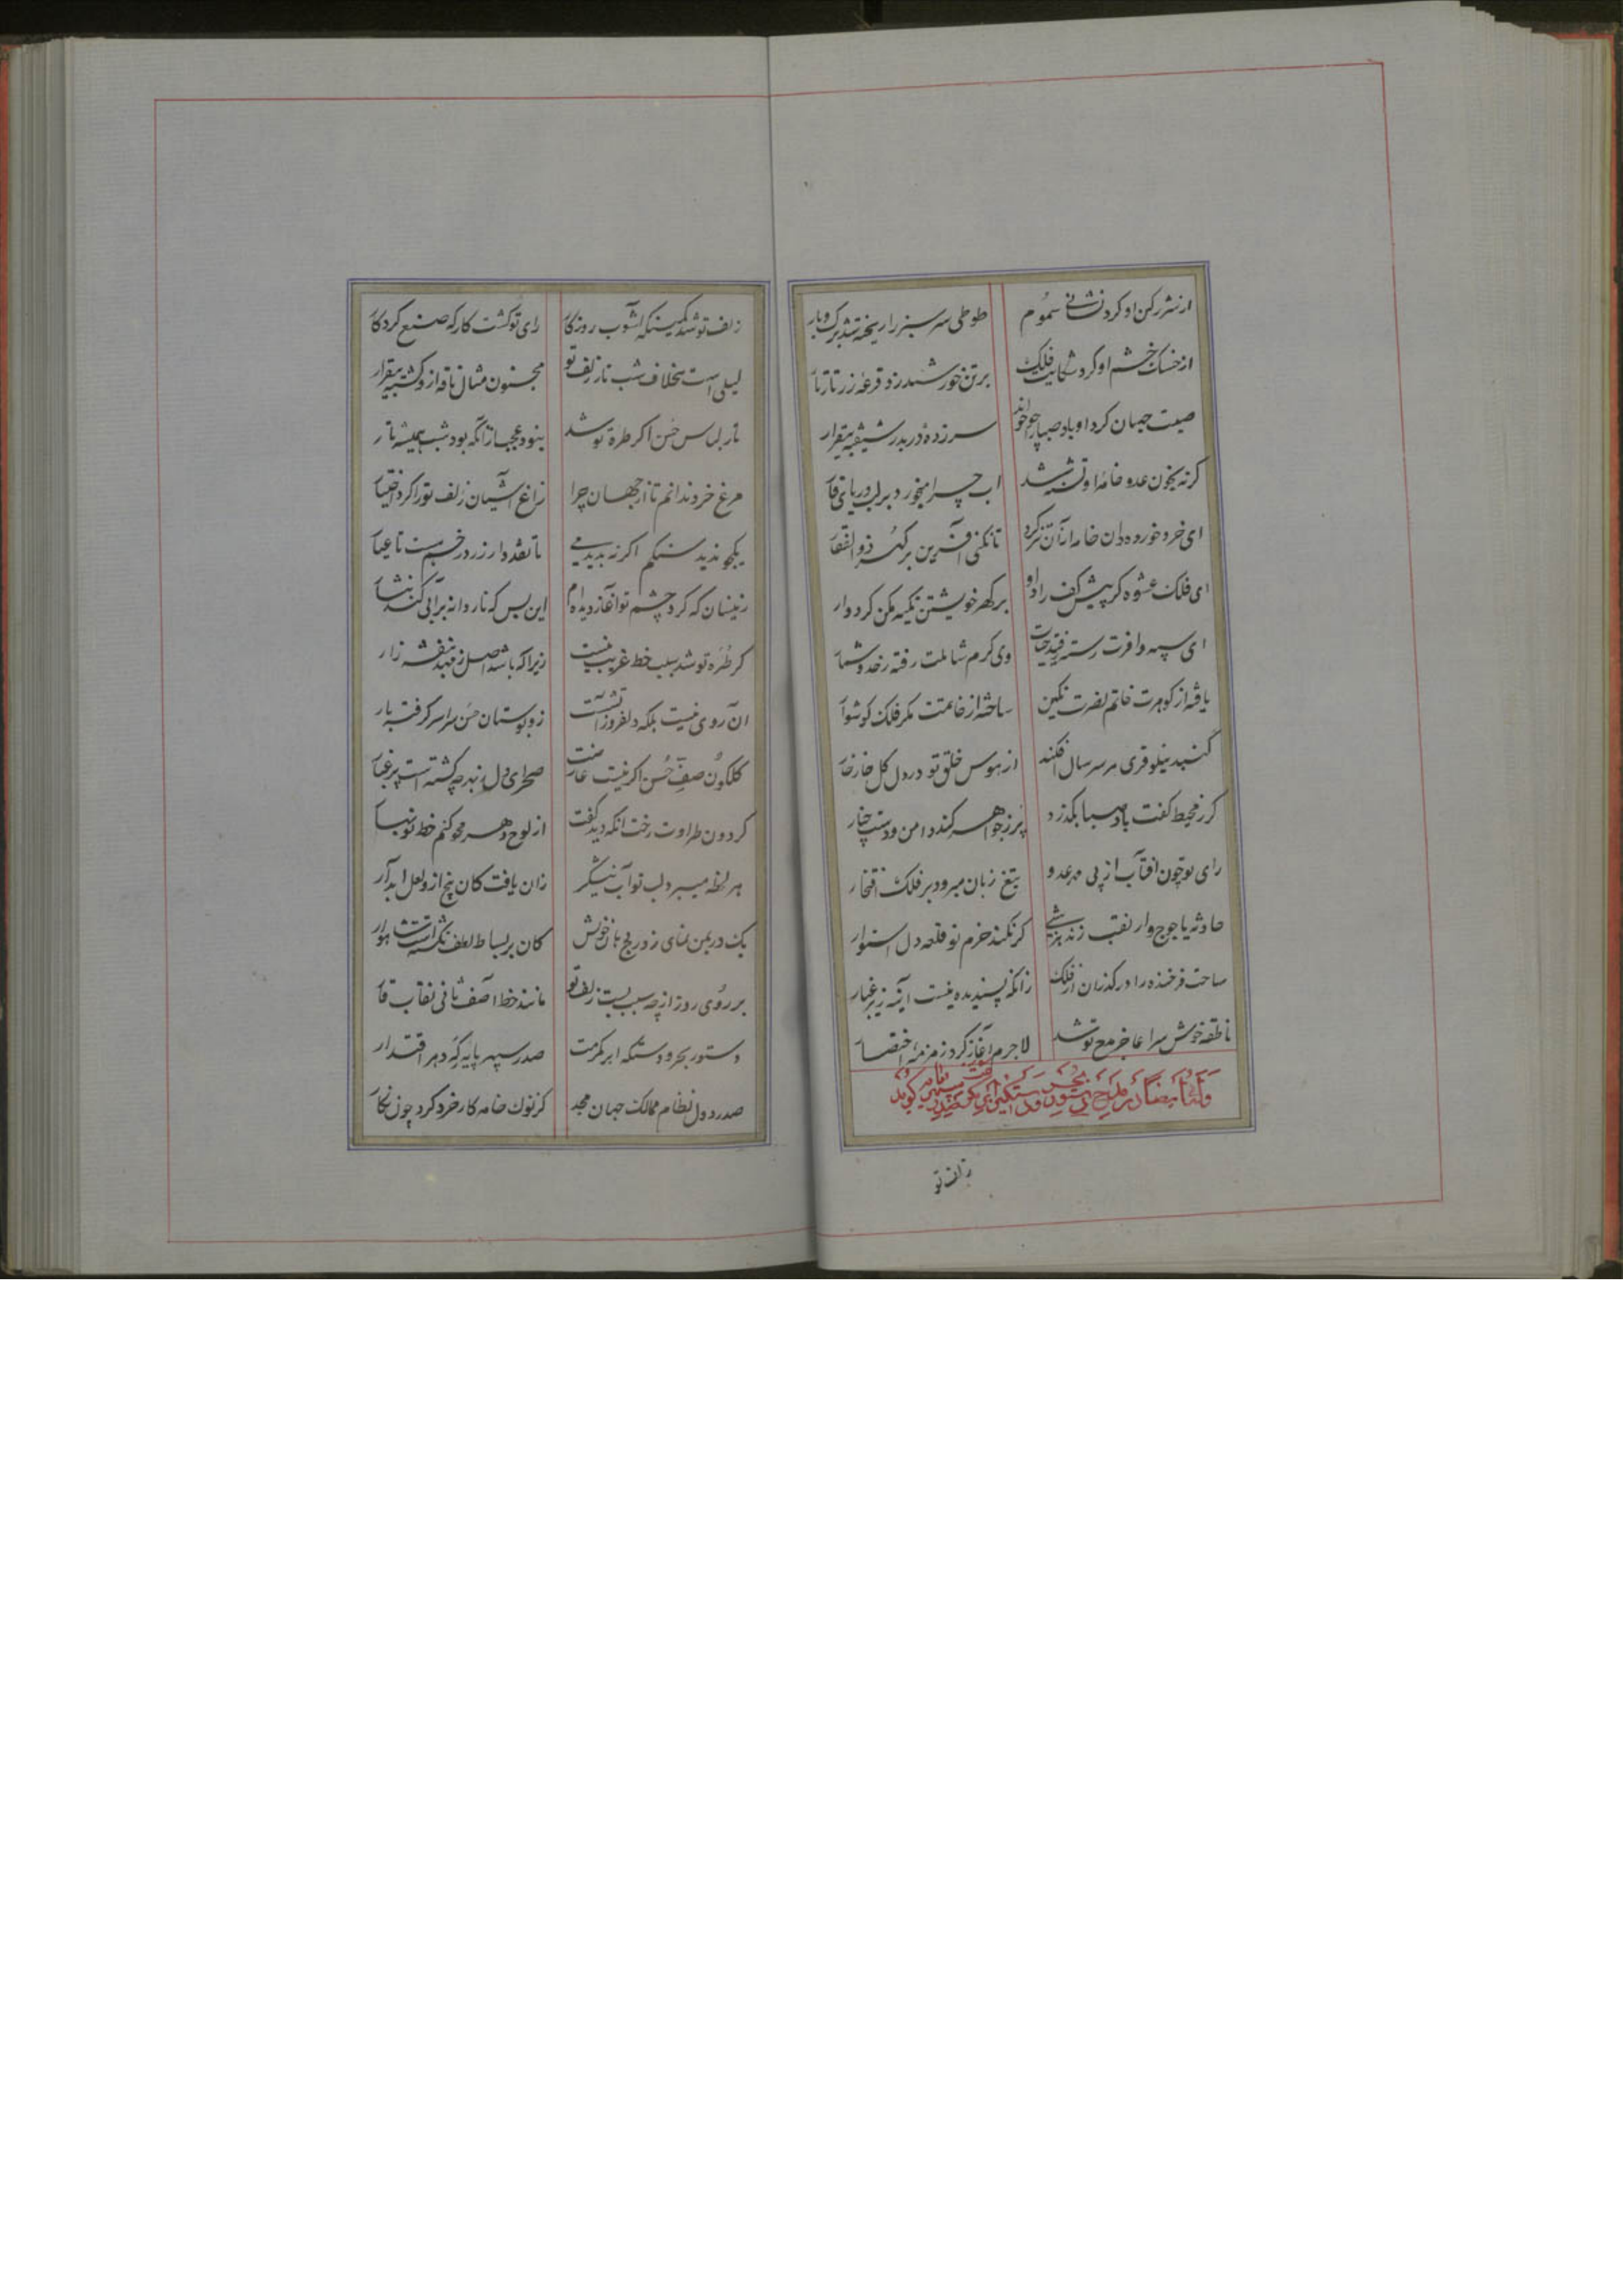 از شرر کین او کرد نشانی سموم طوطی سرسبز را ریخته شد برک و بار
از خسک خشم او کرد شکایت فلک بر تن خورشید زد قرعه زر تار تار
صیت جهان کرد او باد صبا را چو خواند سر زده در بدر شیفته بیقرار
کر نه بخون عدو خامه او تشنه شد اب چرا میخورد بر لب دریای قار
ای خرد خورده دان خامه از آن تیز کرد تا نکنی آفرین بر کهر ذوالفقار
ای فلک عشوه کر پیش کف راد او بر کهر خویشتن تکیه مکن کرد دار
ای سپه وافرت رسته ز قید حیات وی کرم شاملت رفته ز حد و شمار
یافته از کوهرت خاتم نصرت نکین ساخته از خاتمت مکر فلک کوشوار
کنبد نیلوفری هر سر سال افکند از هوس خلق تو در دل کل خار خار
کر ز محیط کفت باد صبا بکذرد پر ز جواهر کند دامن و دست چنار
رای تو چون افتاب از پی عدو تیغ زبان میرود بر فلک افتخار
حادثه یاجوج وار نقب زند هر شبی کر نکند حزم تو قلعه دل استوار
ساحت فرخنده را در کذران از فلک زانکه پسندیده نیست اینه زیر غبار
ناطقه خوش سرا عاجز مدح تو شد لاجرم آغاز کرد زمزمه اختصار
وله ایضا در مدح دستور کوید
زلف تو
زلف تو شد کمینکه آشوب روزکار رای تو کشت کارکه صنع کردکار
لیلی است بخلاف شب تار زلف تو مجنون مثال ناقه از و کشته بیقرار
تار لباس حسن اکر طره تو شد نبود عجب از آنکه بود شب همیشه تار
مرغ خرد ندانم تا از جهان چرا زاغ آشیان زلف تو را کرد اختیار
یکجو ندید سنکم اکر نه بدیدمی تا نقد وار زر در خمست تا عیار
زینسان که کرد چشم تو آغاز دیده ام این بس که ناردانه بر آبی کند نثار
کر طره تو شد سبب خط غریب نیست زیرا که باشد اصل ز مید بنفشه زار
ان روی نیست بلکه دلفروز آتشست زو بوستان حسن سراسر کرفته بار
کلکون صف حسن اکر نیست عارضت صحرای دل ز بهر چه کشته است پر غبار
کردون طراوت رخت انکه دید کفت از لوح دهر محو کنم خط نوبهار
هر لحظه میبرد لب تو آب نیشکر زان یافت کان پنج از و لعل ابدار
یک در بمن نمای ز درج دهان خویش کان بر بساط لطف نکر است شاهوار
بر روی روز از چه سبب بست زلف تو مانند خط آصف ثانی نقاب قار
دستور بحر و دستکه ابر مکرمت صدر سپهر پایه که دهر اقتدار
صدر دول نظام ممالک جهان مجد کز نوک خامه کار خرد کرد چون نکار